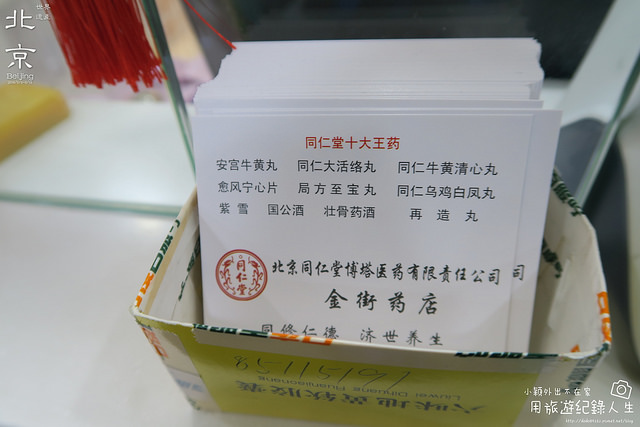 世界
遺産
北
京
Beijing
同仁堂十大王药
安宫牛黄丸 同仁大活络丸 同仁牛黄清心丸
愈风宁心片 局方至宝丸 同仁乌鸡白凤丸
紫雪 国公酒 壮骨药酒 再造丸
同仁堂
北京同仁堂博塔医药有限责任公司 司
金街药店
同修仁德 济世养生
Liuwei Dihuang Ruanjiaonang
六味地黄软胶囊
小穎外出不在家
用旅遊紀錄人生